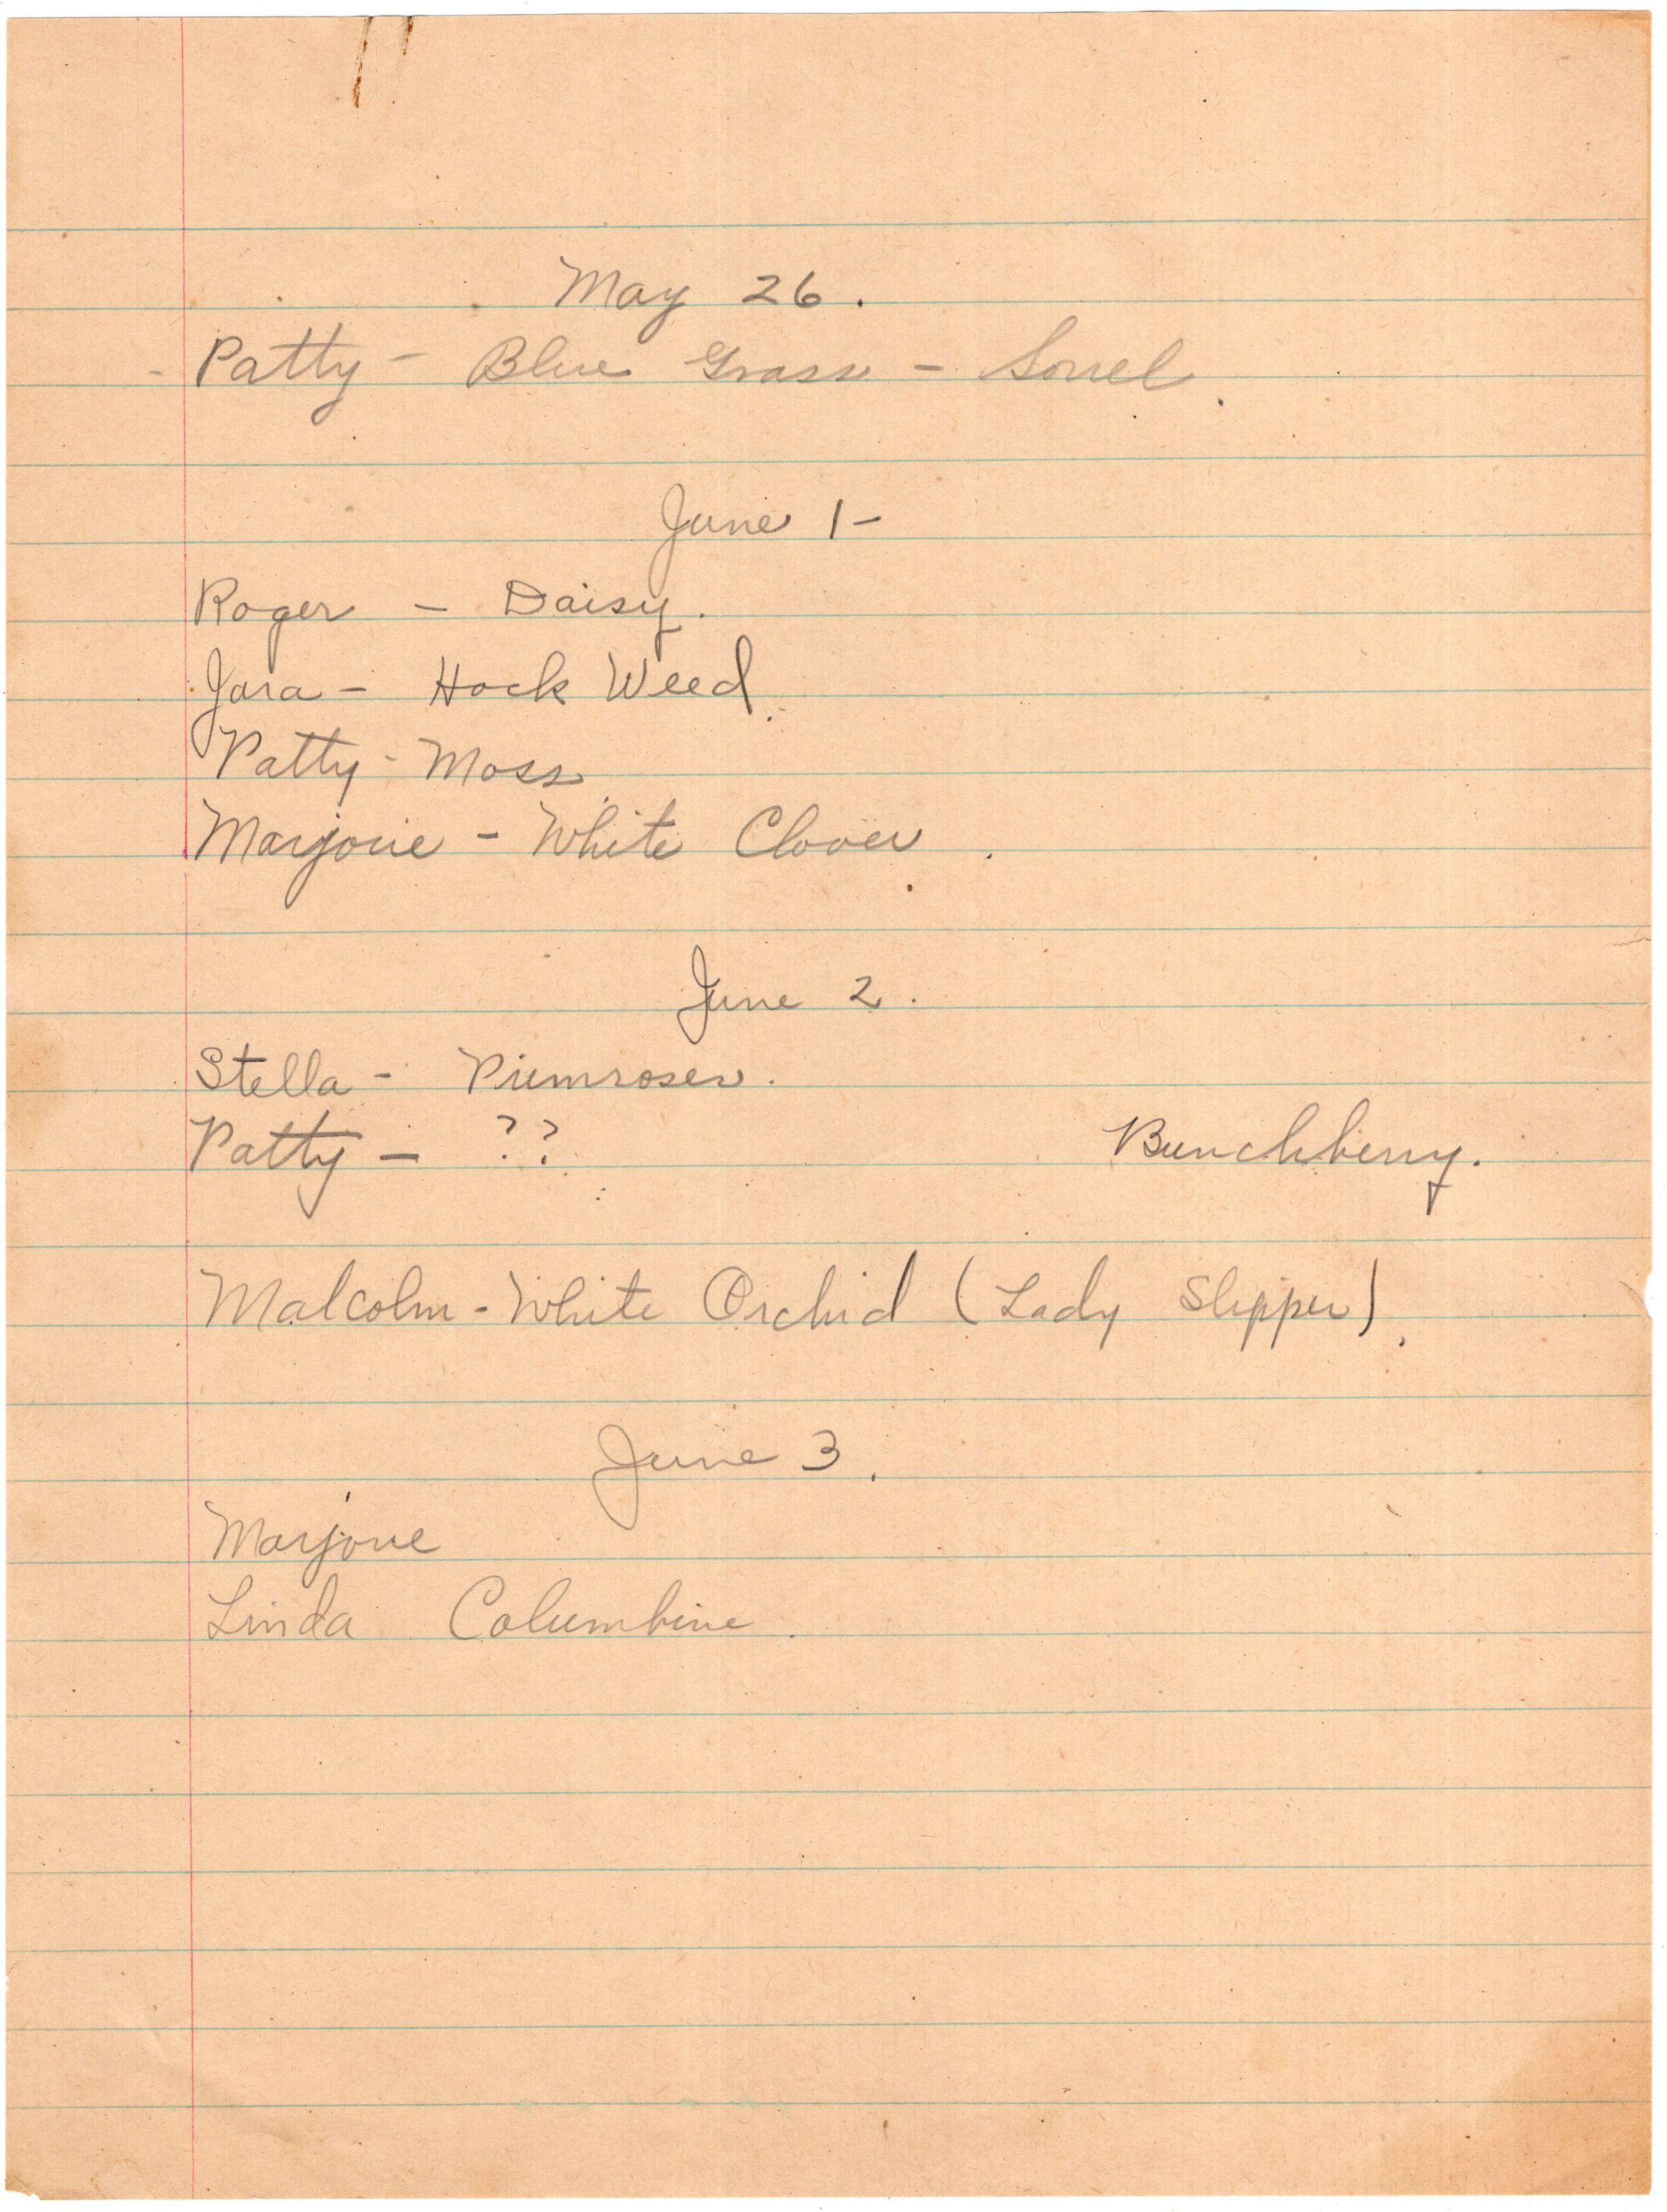 May 26.
- Patty - Blue Grass - Sorrel.
June 1 -
Roger - Daisy.
Jara - Hock Weed.
Patty - Moss
Marjorie - White Clover.
June 2.
Stella - Primroses.
Patty - ?? Bunchberry.
Malcolm - White Orchid (Lady Slipper).
June 3.
Marjorie
Linda Columbine.